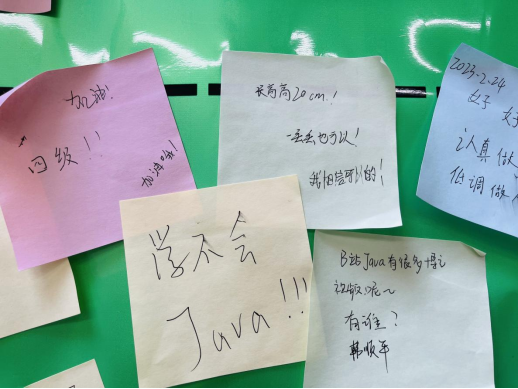 加油!
四级!!
加油哦!
长高高20cm!
一丢丢也可以!
我相信可以的!
2023.2.24
女子
认真做
低调做
学不会
Java!!!
B站Java有很多博主
视频呢～
有谁?
韩顺平